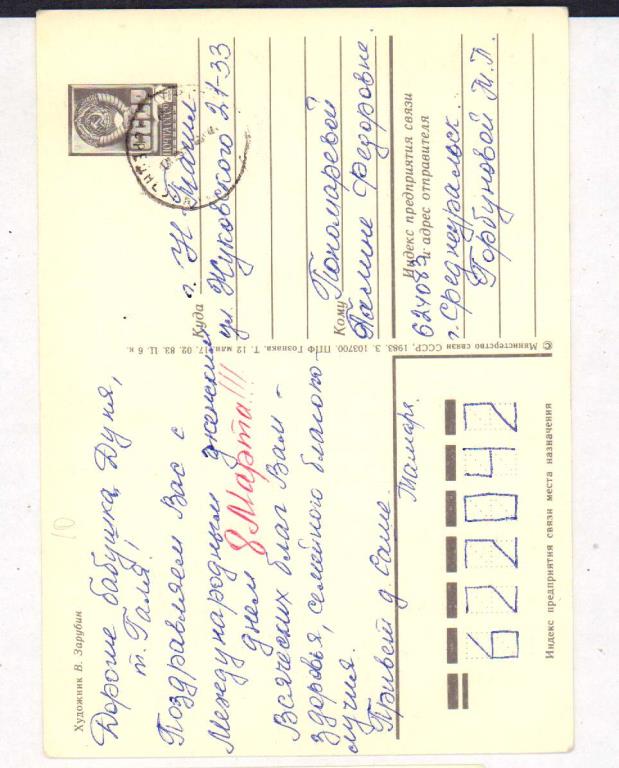 Художник В. Зарубин
Дорогие бабушка, Дуня,
т. Галя,
Поздравляем Вас с
Международным женским
днем 8 Марта!!!
Всяческих благ Вам -
здоровья, семейного благопо-
лучия.
Привет д. Саше.
Тамара.
Куда г. Н-Тагил
ул. Жуковского 21-33
Кому Пономаревой
Галине Федоровне.
Индекс предприятия связи
и адрес отправителя
624083
г. Среднеуральск
Горбуновой М.П.
© Министерство связи СССР, 1983. З. 103700. ППФ Гознака. Т. 12 млн. 17. 02. 83. Ц. 6 к.
622042
Индекс предприятия связи места назначения
10